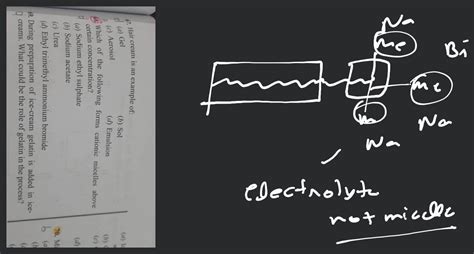 r. Hair cream is an example of:
(a) Gel
(b) Sol
(c) Aerosol
(d) Emulsion
Which of the following forms cationic micelles above
certain concentration?
(a) Sodium ethyl sulphate
(b) Sodium acetate
(c) Urea
(d) Ethyl trimethyl ammonium bromide
During preparation of ice-cream gelatin is added in ice-
creams. What could be the role of gelatin in the process?
Na
me
Br
me
Na
Na
electrolyte
not micelle